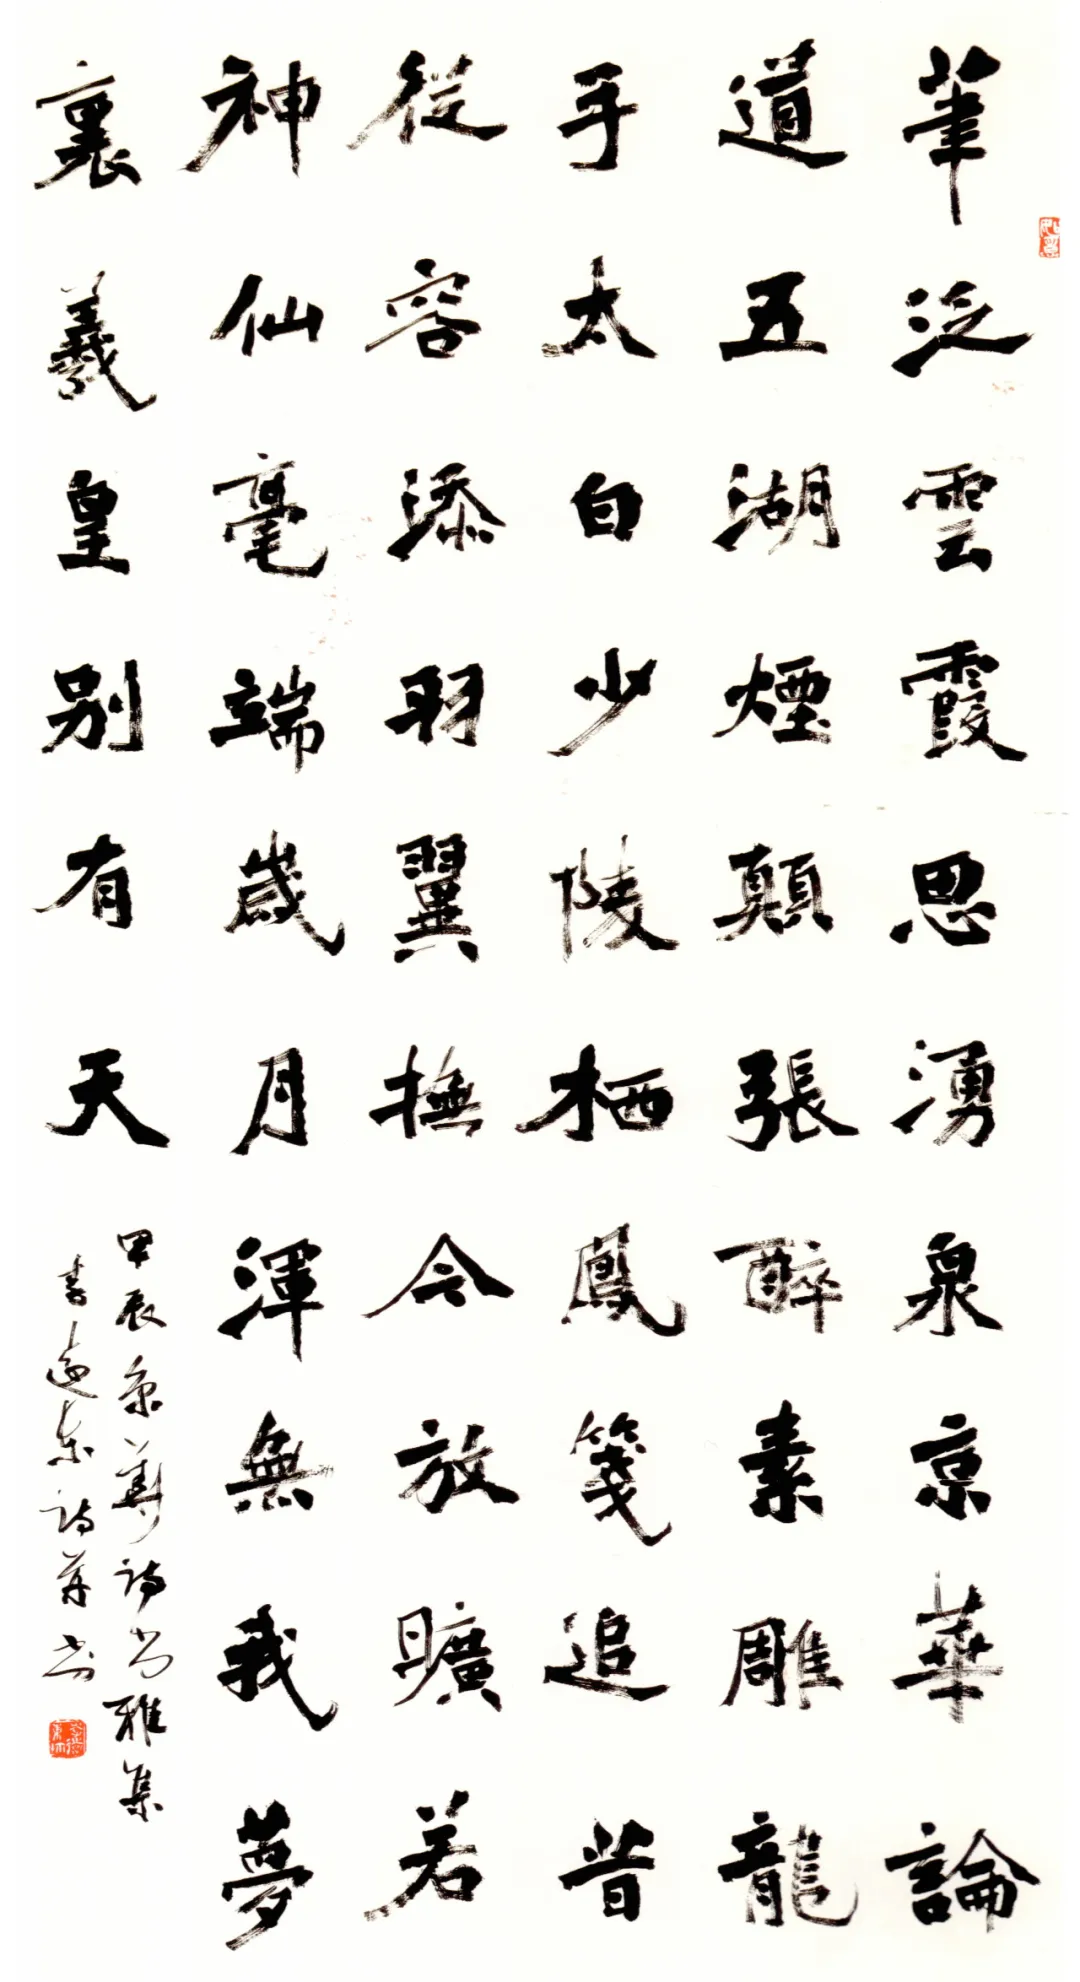 筆泛雲霞思湧泉京華論
道五湖煙顛張醉素雕龍
手太白少陵栖鳳箋追昔
從容添羽翼撫今放曠若
神仙毫端歲月渾無我夢
裏羲皇別有天
甲辰京華詩書雅集
李遠東詩並書